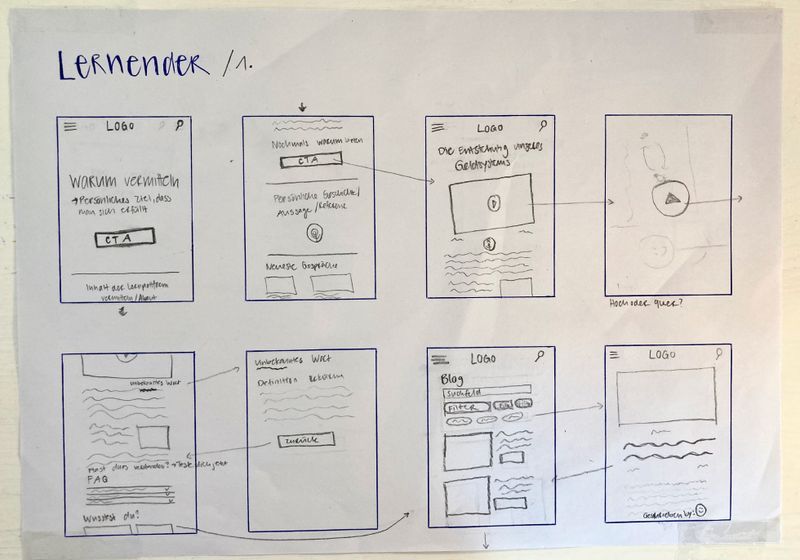 Lernender /1.
LOGO
Warum vermitteln
→ Persönliches Ziel, dass
man sich erfüllt
CTA
Inhalt der Lernplattform
vermitteln/About
Nochmals Warum
CTA
Persönliche Geschichte/
Aussage/Referenz
Neueste Gespräche
LOGO
Die Entstehung unseres
Geldsystems
Hoch oder quer?
Unbekanntes Wort
Hast du es verstanden? → Teste dich jetzt
FAQ
Wusstest du?
Unbekanntes Wort
Definition
zurück
LOGO
Blog
Suchfeld
Filter
LOGO
Geschrieben by: